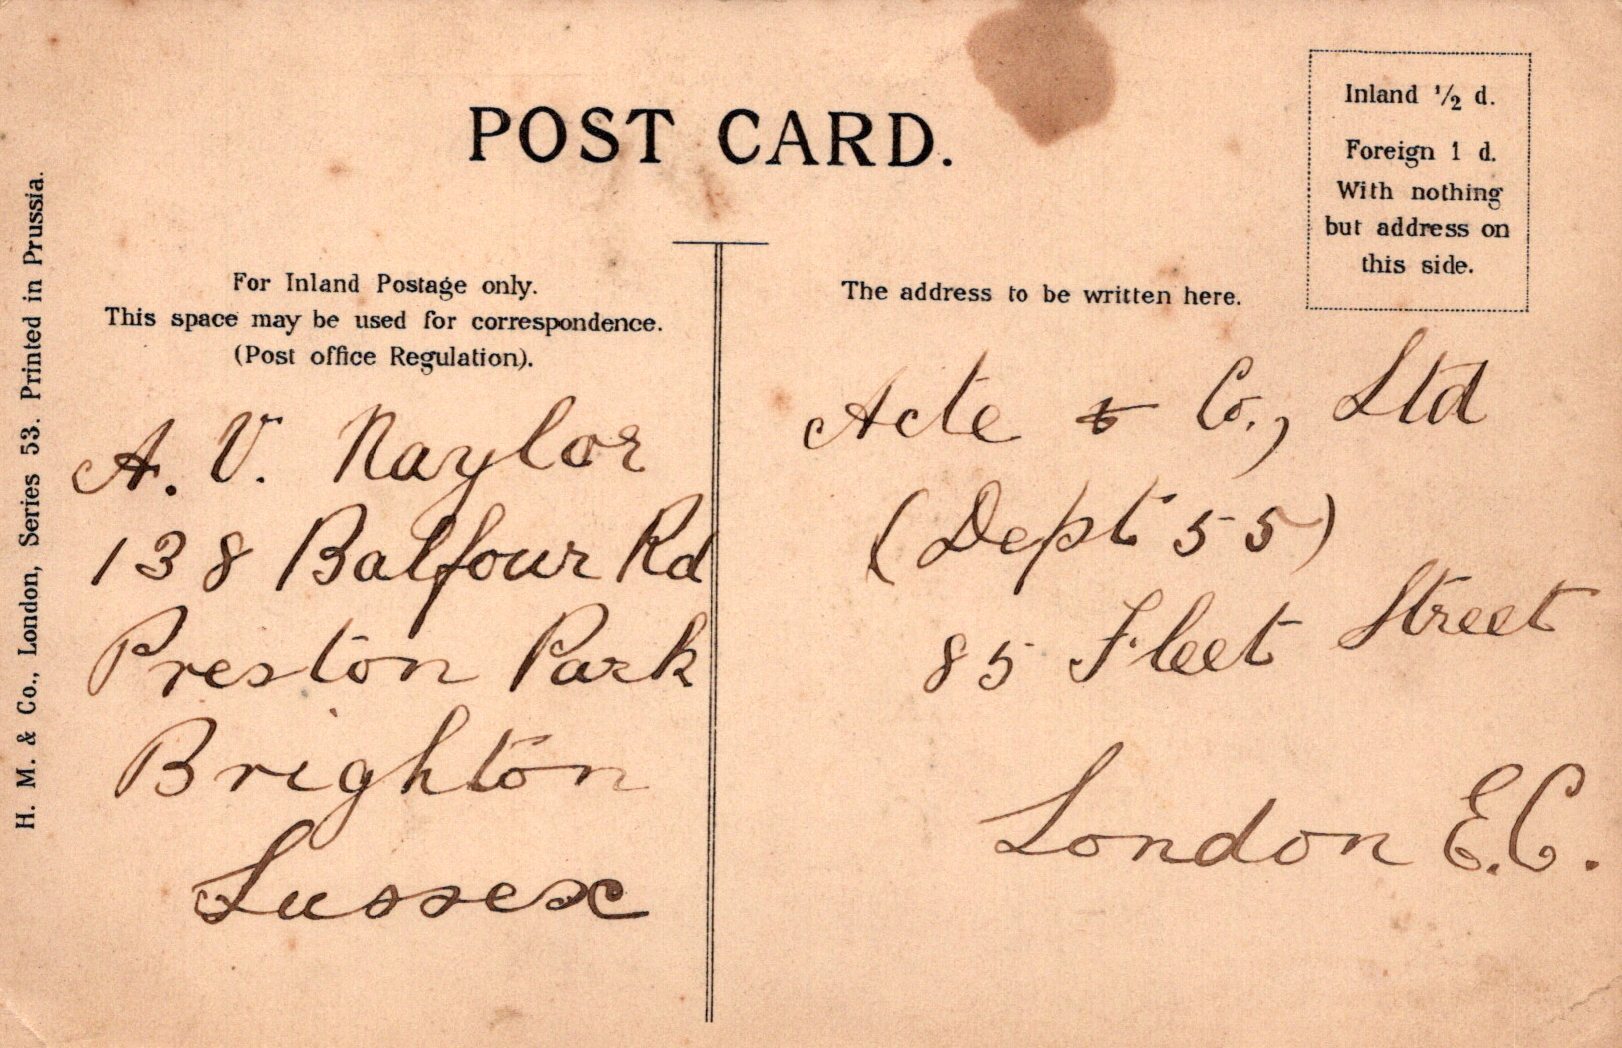 POST CARD.
Inland ½ d.
Foreign 1 d.
With nothing
but address on
this side.
For Inland Postage only.
This space may be used for correspondence.
(Post office Regulation).
The address to be written here.
A. V. Naylor
138 Balfour Rd
Preston Park
Brighton
Sussex
Acte & Co., Ltd
(Dept 55)
85 Fleet Street
London E.C.
H. M. & Co., London, Series 53. Printed in Prussia.